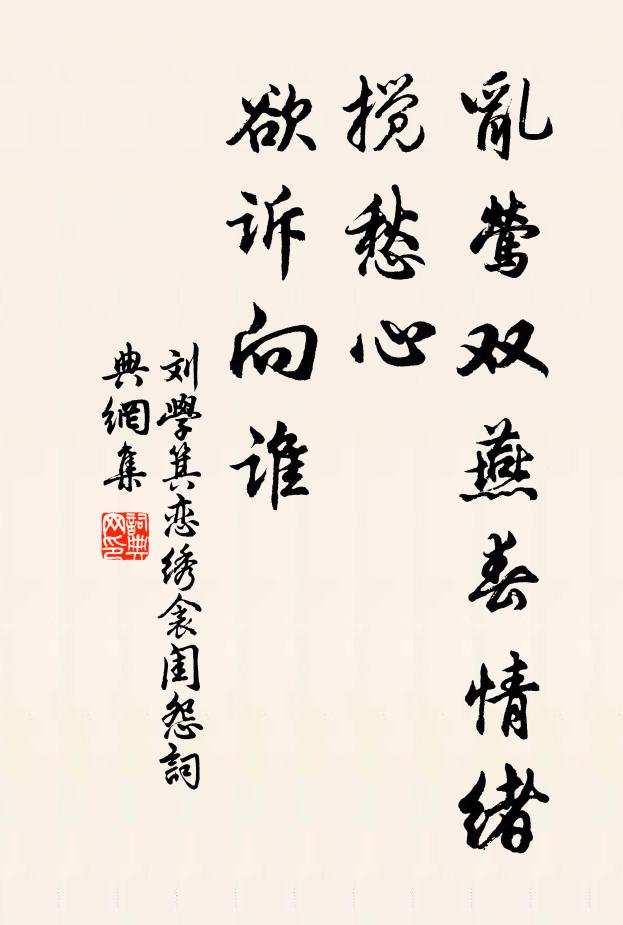 亂鶯双燕春情緒
攪愁心
欲诉向谁
刘學箕恋绣衾闺怨詞
典網集
詞典
网印